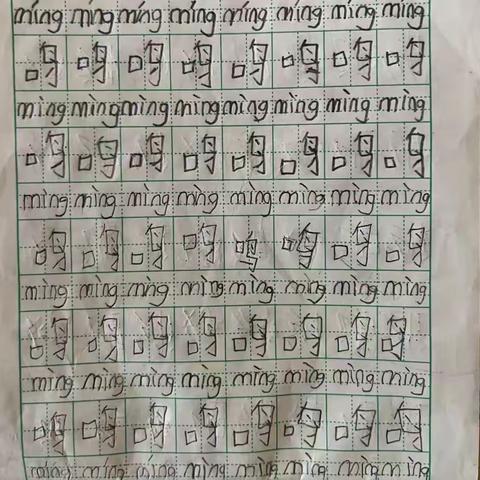 míng míng míng míng míng míng mìng mìng
鸣 鸣 鸣 鸣 鸣 鸣 鸣 鸣
mìng mìng mìng mìng mìng mìng mìng mìng
鸣 鸣 鸣 鸣 鸣 鸣 鸣 鸣
mìng mìng mìng mìng mìng mìng mìng mìng
鸣 鸣 鸣 鸣 鸣 鸣 鸣 鸣
mìng mìng mìng mìng mìng mìng mìng mìng
鸣 鸣 鸣 鸣 鸣 鸣 鸣 鸣
mìng mìng mìng mìng mìng mìng mìng mìng
鸣 鸣 鸣 鸣 鸣 鸣 鸣 鸣
míng míng míng mìng mìng mìng mìng mìng